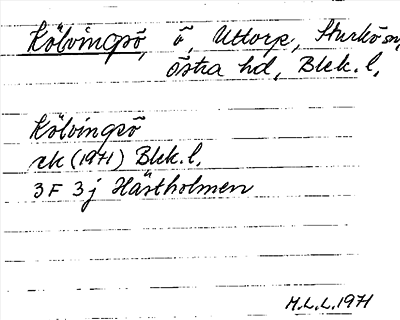 Kölvingsö, ö, Uttorp, Sturkö sn,
östra hd, Blek. l.
Kölvingsö
rk (1971) Blek. l.
3F 3j Hästholmen
M.L.L. 1971